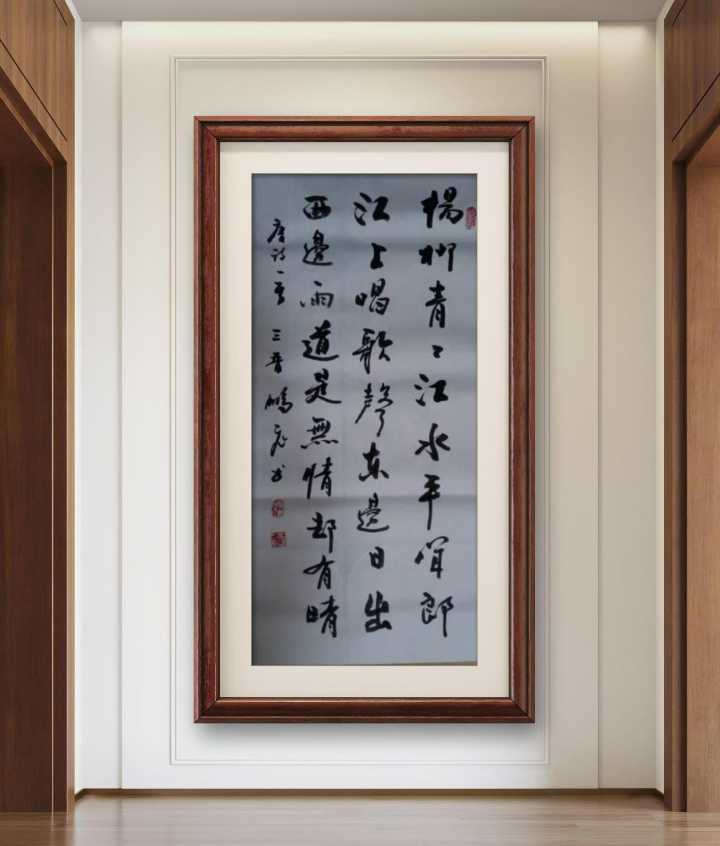 楊柳青〻江水平聞郎
江上唱歌聲東邊日出
西邊雨道是無情却有晴
唐诗一首 三晋鵬书